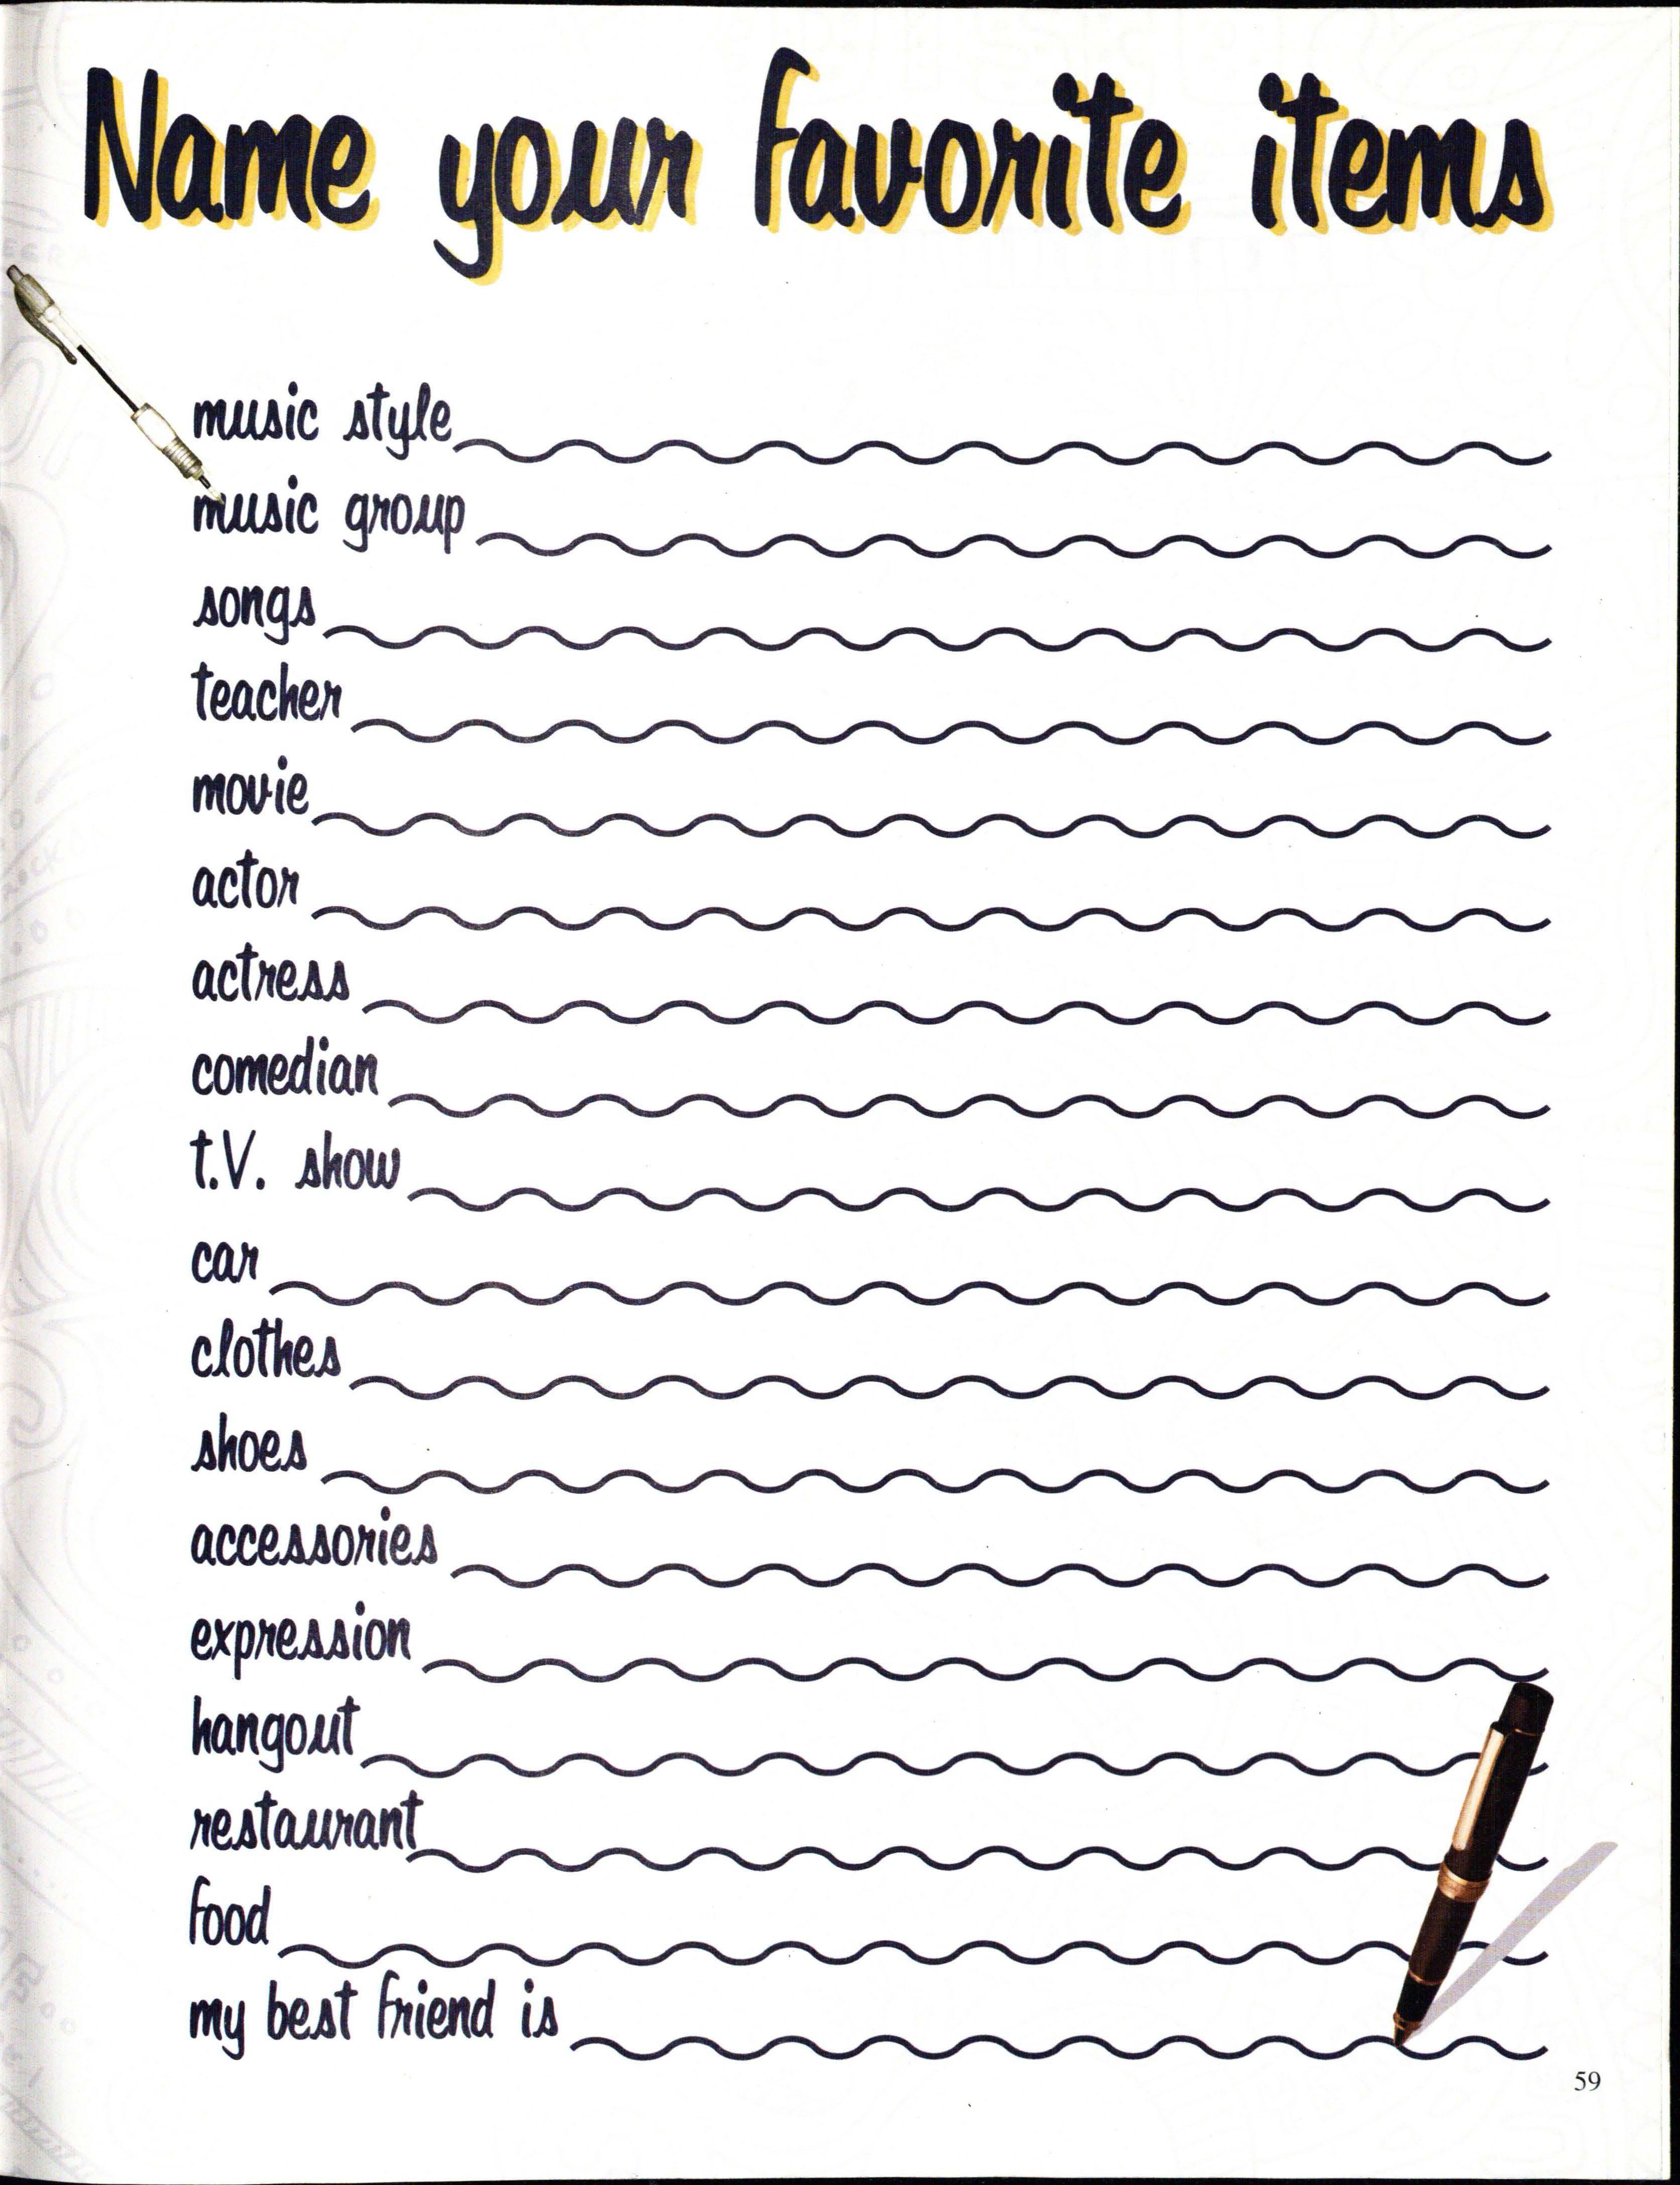 Name your favorite items
music style
music group
songs
teacher
movie
actor
actress
comedian
t.V. show
car
clothes
shoes
accessories
expression
hangout
restaurant
food
my best friend is
59